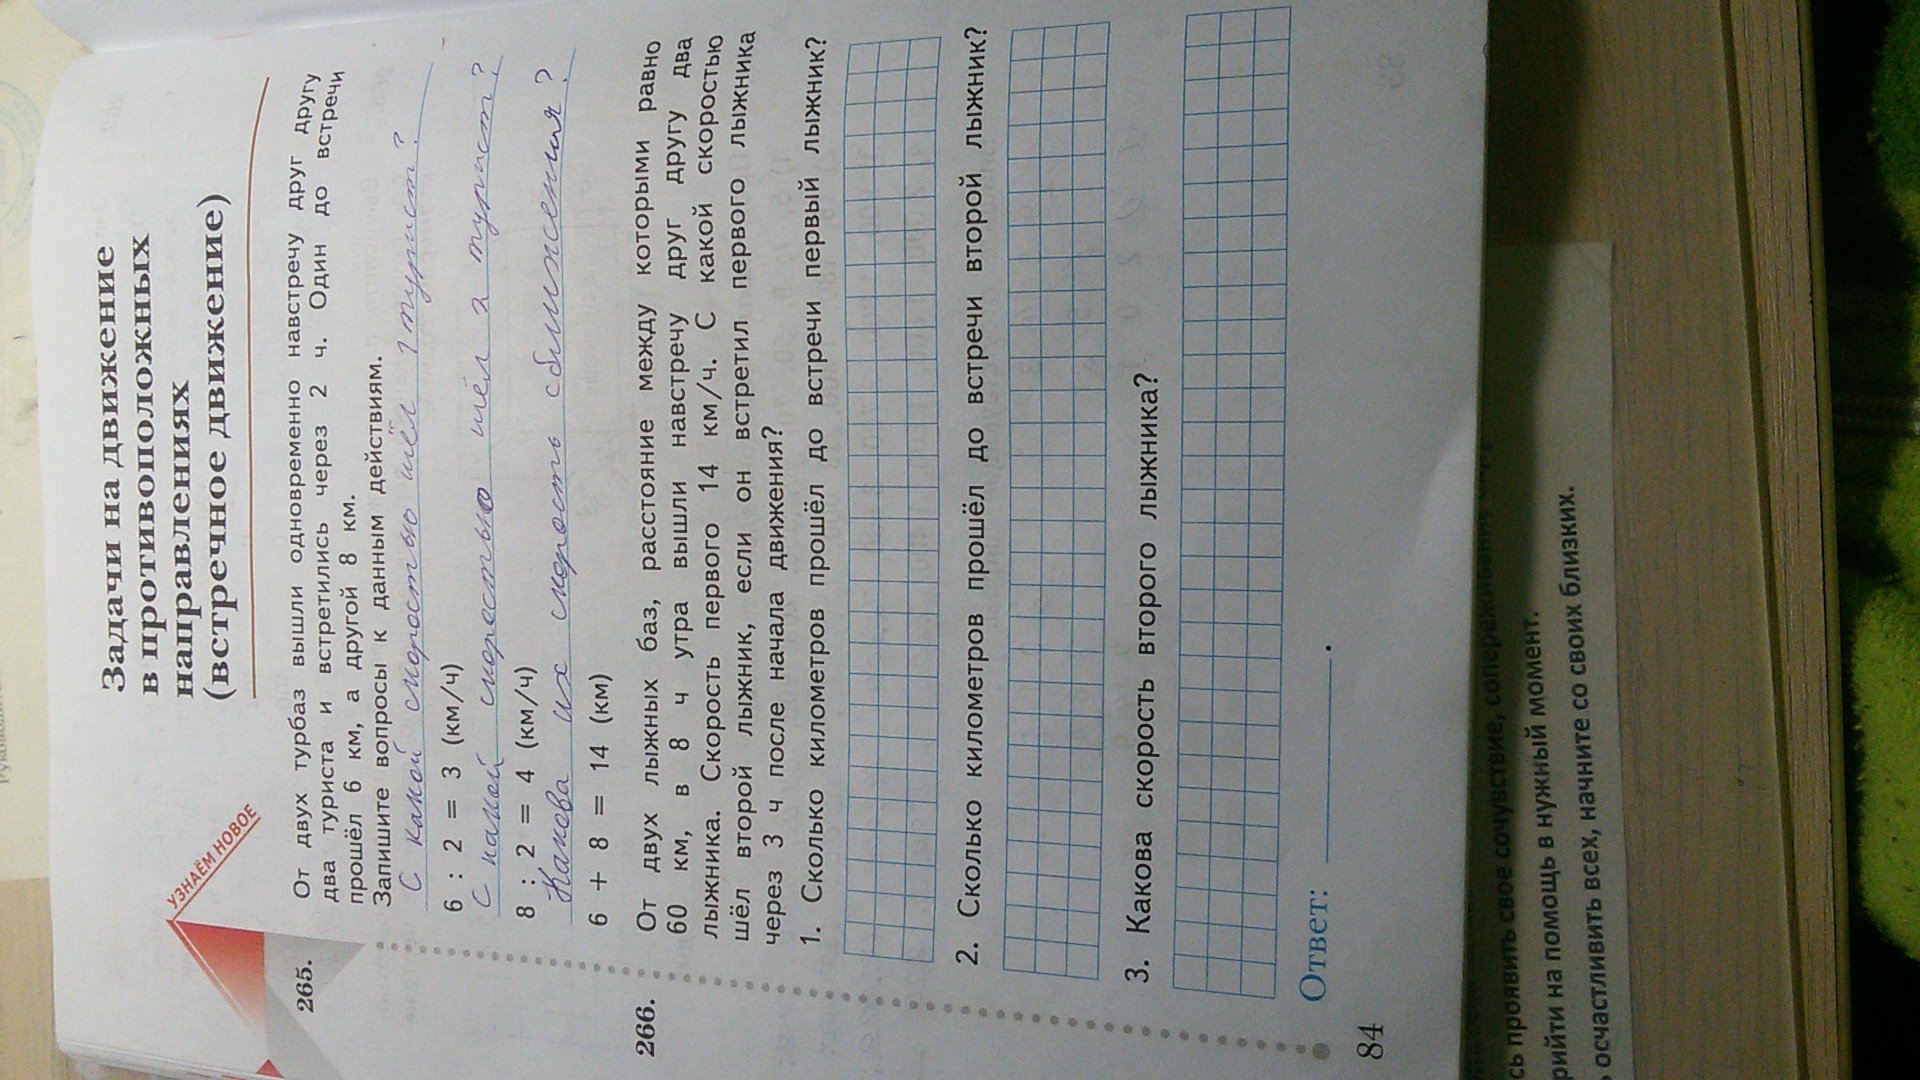 Задачи на движение
в противоположных
направлениях
(встречное движение)
УЗНАЁМ НОВОЕ
265. От двух турбаз вышли одновременно навстречу друг другу
два туриста и встретились через 2 ч. Один до встречи
прошёл 6 км, а другой 8 км.
Запишите вопросы к данным действиям.
С какой скоростью шёл 1 турист?
6 : 2 = 3 (км/ч)
С какой скоростью шёл 2 турист?
8 : 2 = 4 (км/ч)
Какова их скорость сближения?
6 + 8 = 14 (км)
266. От двух лыжных баз, расстояние между которыми равно
60 км, в 8 ч утра вышли навстречу друг другу два
лыжника. Скорость первого 14 км/ч. С какой скоростью
шёл второй лыжник, если он встретил первого лыжника
через 3 ч после начала движения?
1. Сколько километров прошёл до встречи первый лыжник?
2. Сколько километров прошёл до встречи второй лыжник?
3. Какова скорость второго лыжника?
Ответ: .
84
сь проявить свое сочувствие,
рийти на помощь в нужный момент.
осчастливить всех, начните со своих близких.